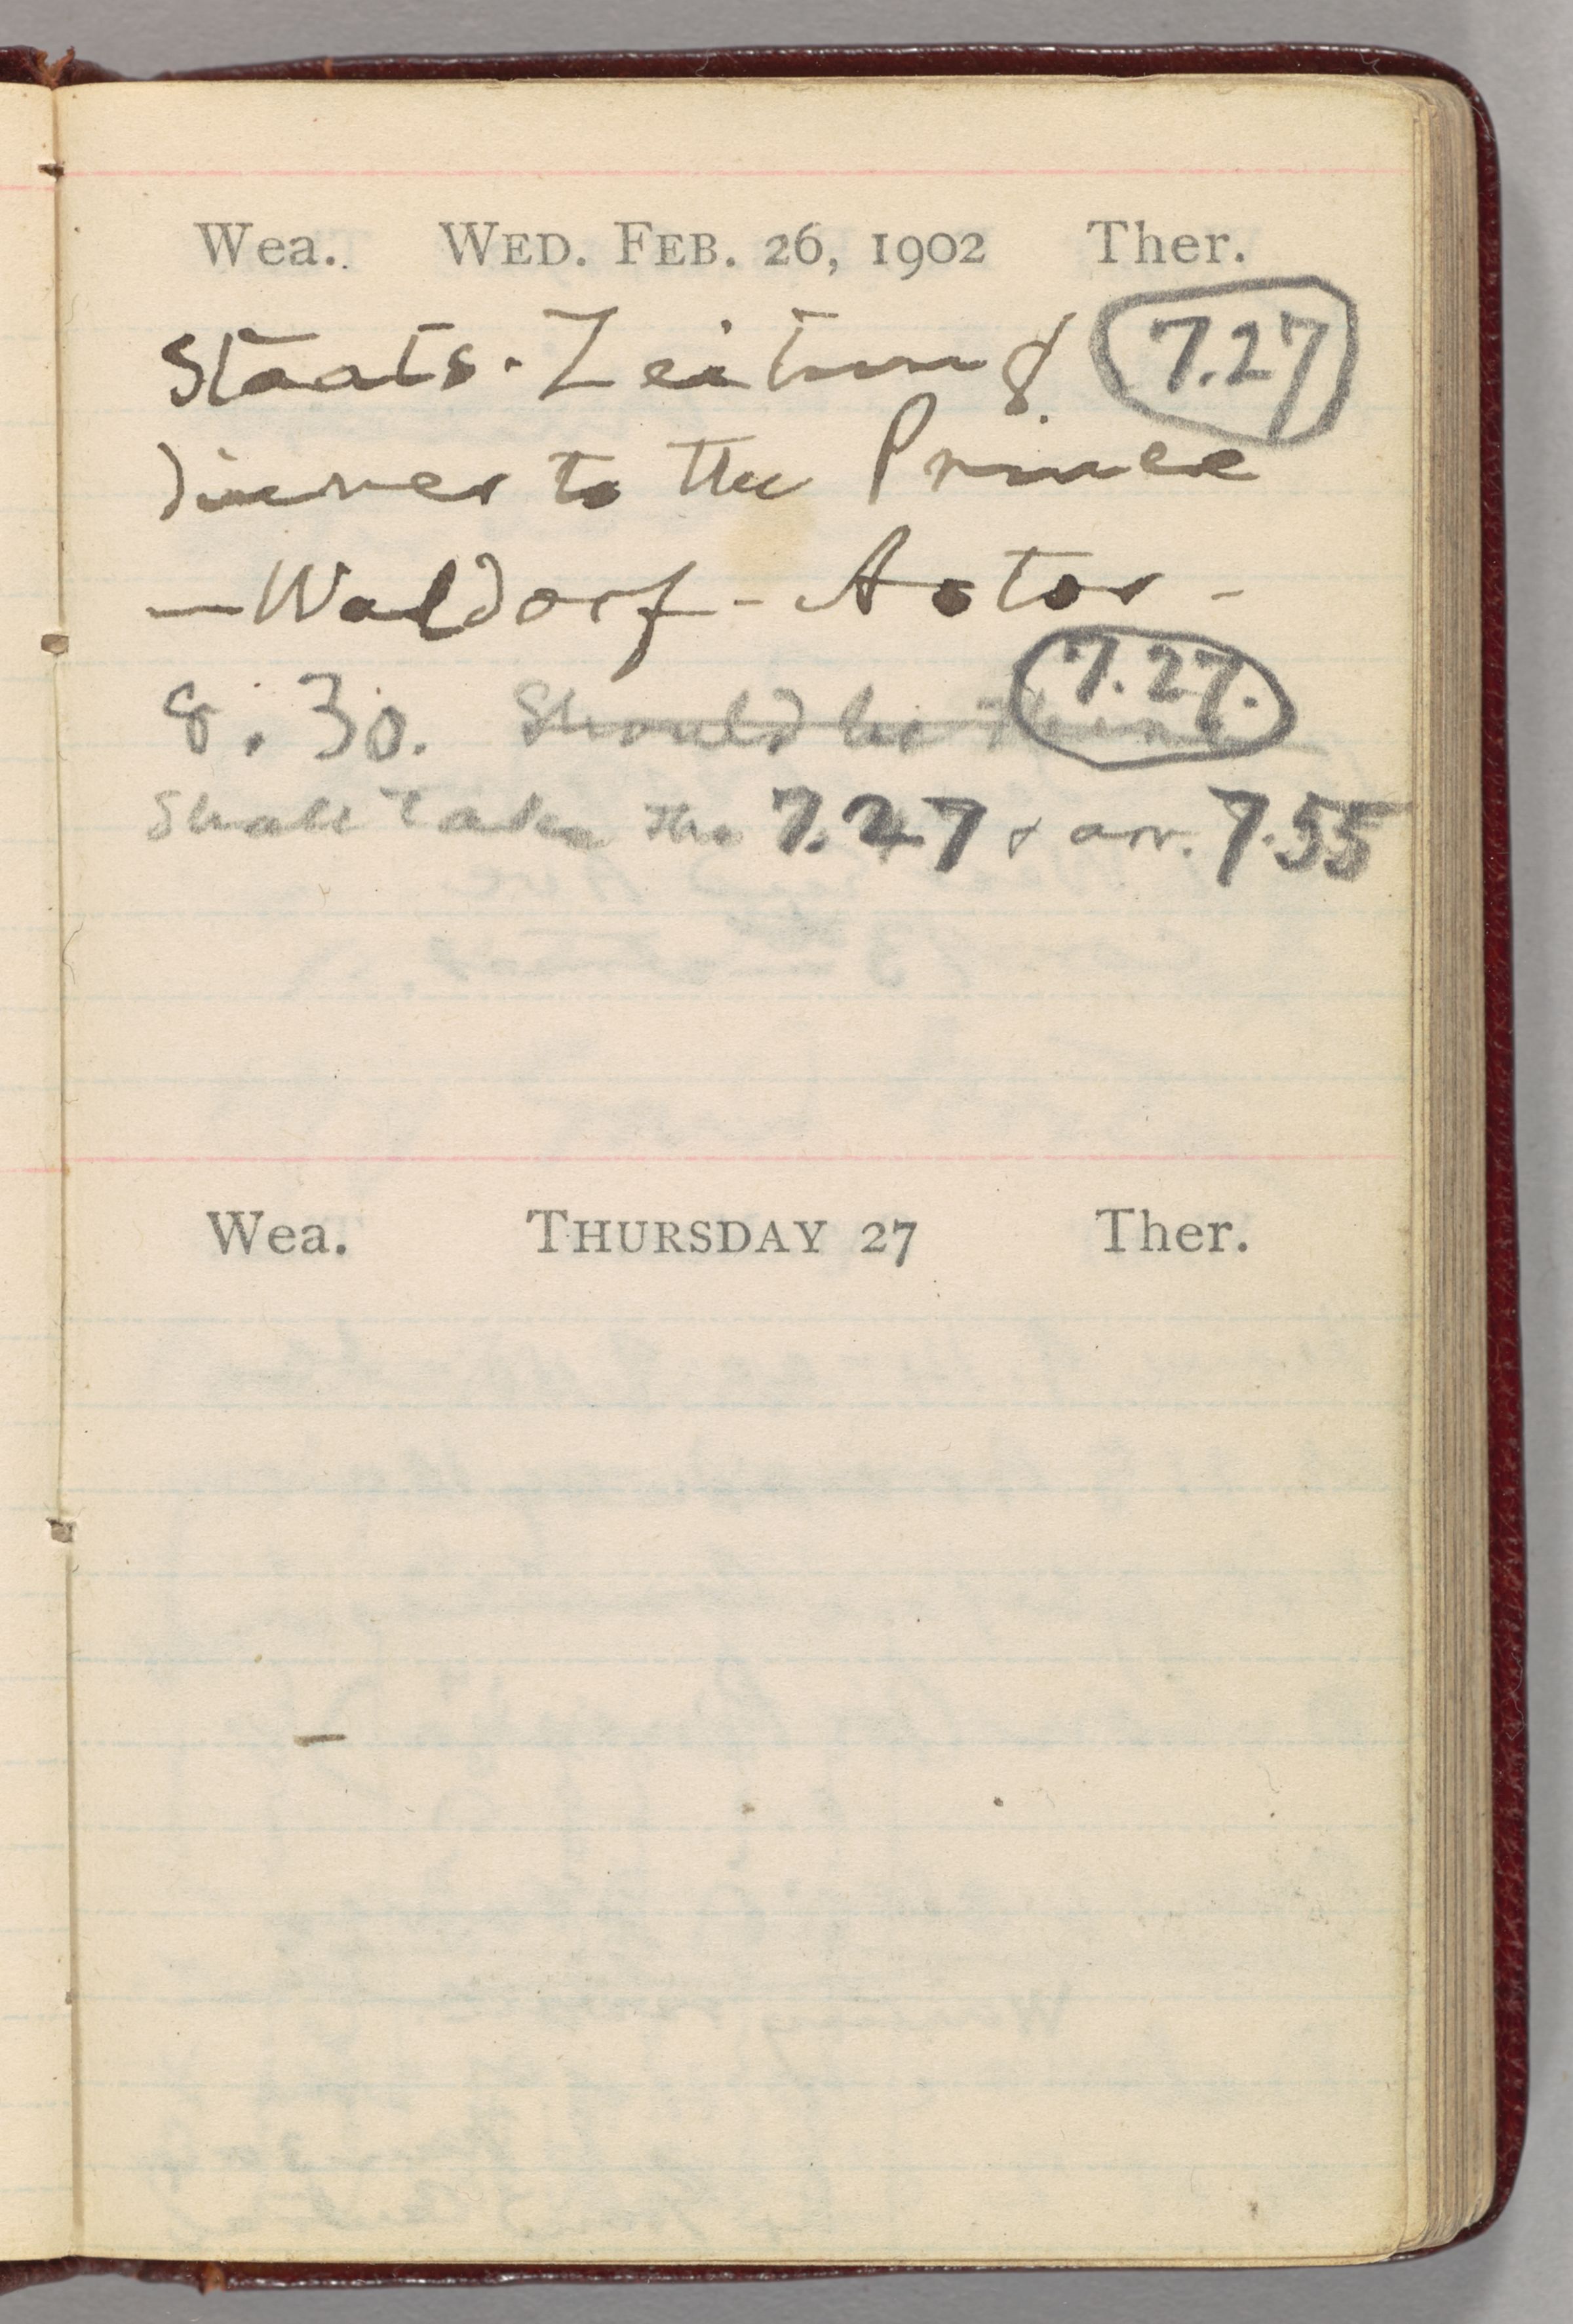 Wea. WED. FEB. 26, 1902 Ther.
Staats-Zeitung 7.27
dinner to the Prince
— Waldorf-Astor -
8.30. Should be there 7.27.
Shall take the 7.27 & arr. 7.55
Wea. THURSDAY 27 Ther.